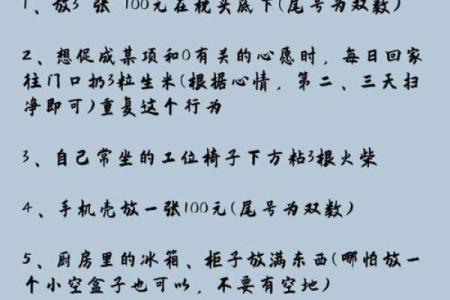 1、放3 张 100元在枕头底下(尾号为双数)
2、想促成某项和0有关的心愿时，每日回家
往门口扔3粒生米(根据心情，第二、三天扫
净即可)重复这个行为
3、自己常坐的工位椅子下方粘3根火柴
4、手机壳放一张100元(尾号为双数)
5、厨房里的冰箱、柜子放满东西(哪怕放一
个小空盒子也可以，不要有空地)